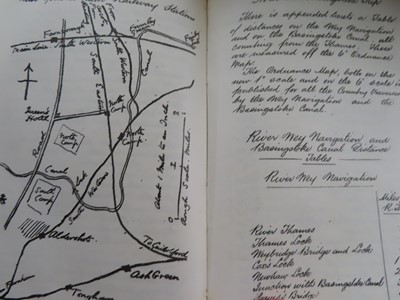 Railway Stations
South Western
Canal
South Eastern
South Western
Queens Hotel
North Camp
North Camp
Canal
South Camp
Aldershot
About 1 Mile to an Inch
Rough Scale. Miles.
To Guildford
Ash Green
Tongham
There is appended hereto a Table
of distances on the Wey Navigation
and on the Basingstoke Canal all
counting from the Thames. These
are measured off the 6" Ordnance
Map.
The Ordnance Map, both on the
new 1" scale and on the 6" scale is
published for all the Country traversed
by the Wey Navigation and the
Basingstoke Canal.
River Wey Navigation and
Basingstoke Canal Distance
Tables
River Wey Navigation
Miles
River Thames
Thames Lock
Weybridge Bridge and Lock
Coxs Lock
Newhaw Lock
Junction with Basingstoke Canal